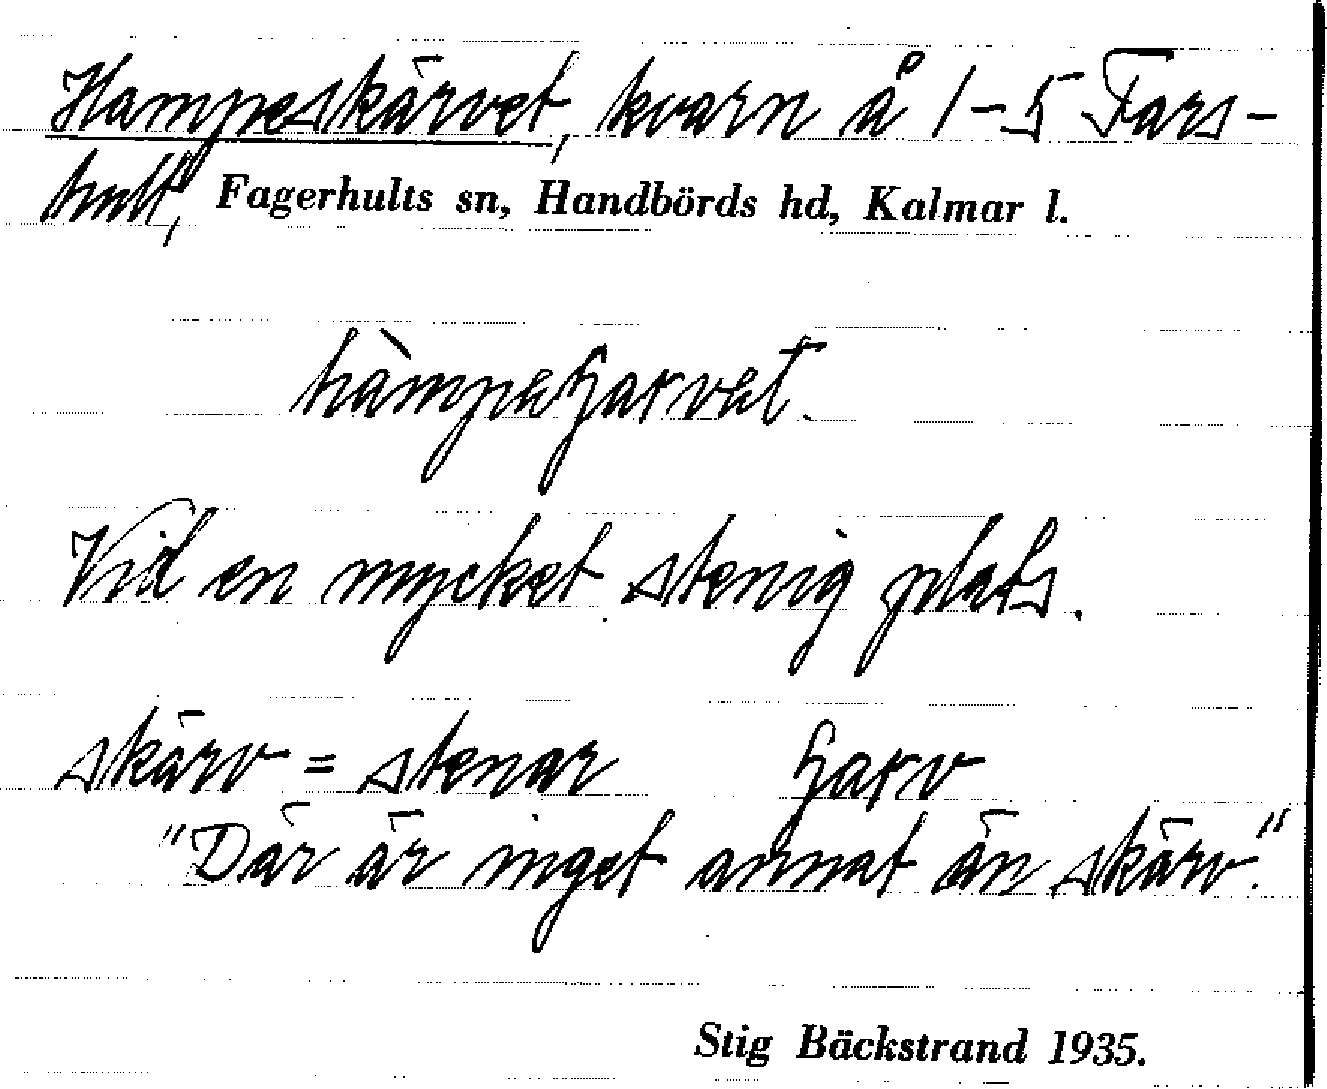 Hampeskärvet, kvarn å 1-5 Fars-
hult, Fagerhults sn, Handbörds hd, Kalmar l.
Vid en mycket stenig plats.
skärv = stenar
"Där är inget annat än skärv."
Stig Bäckstrand 1935.